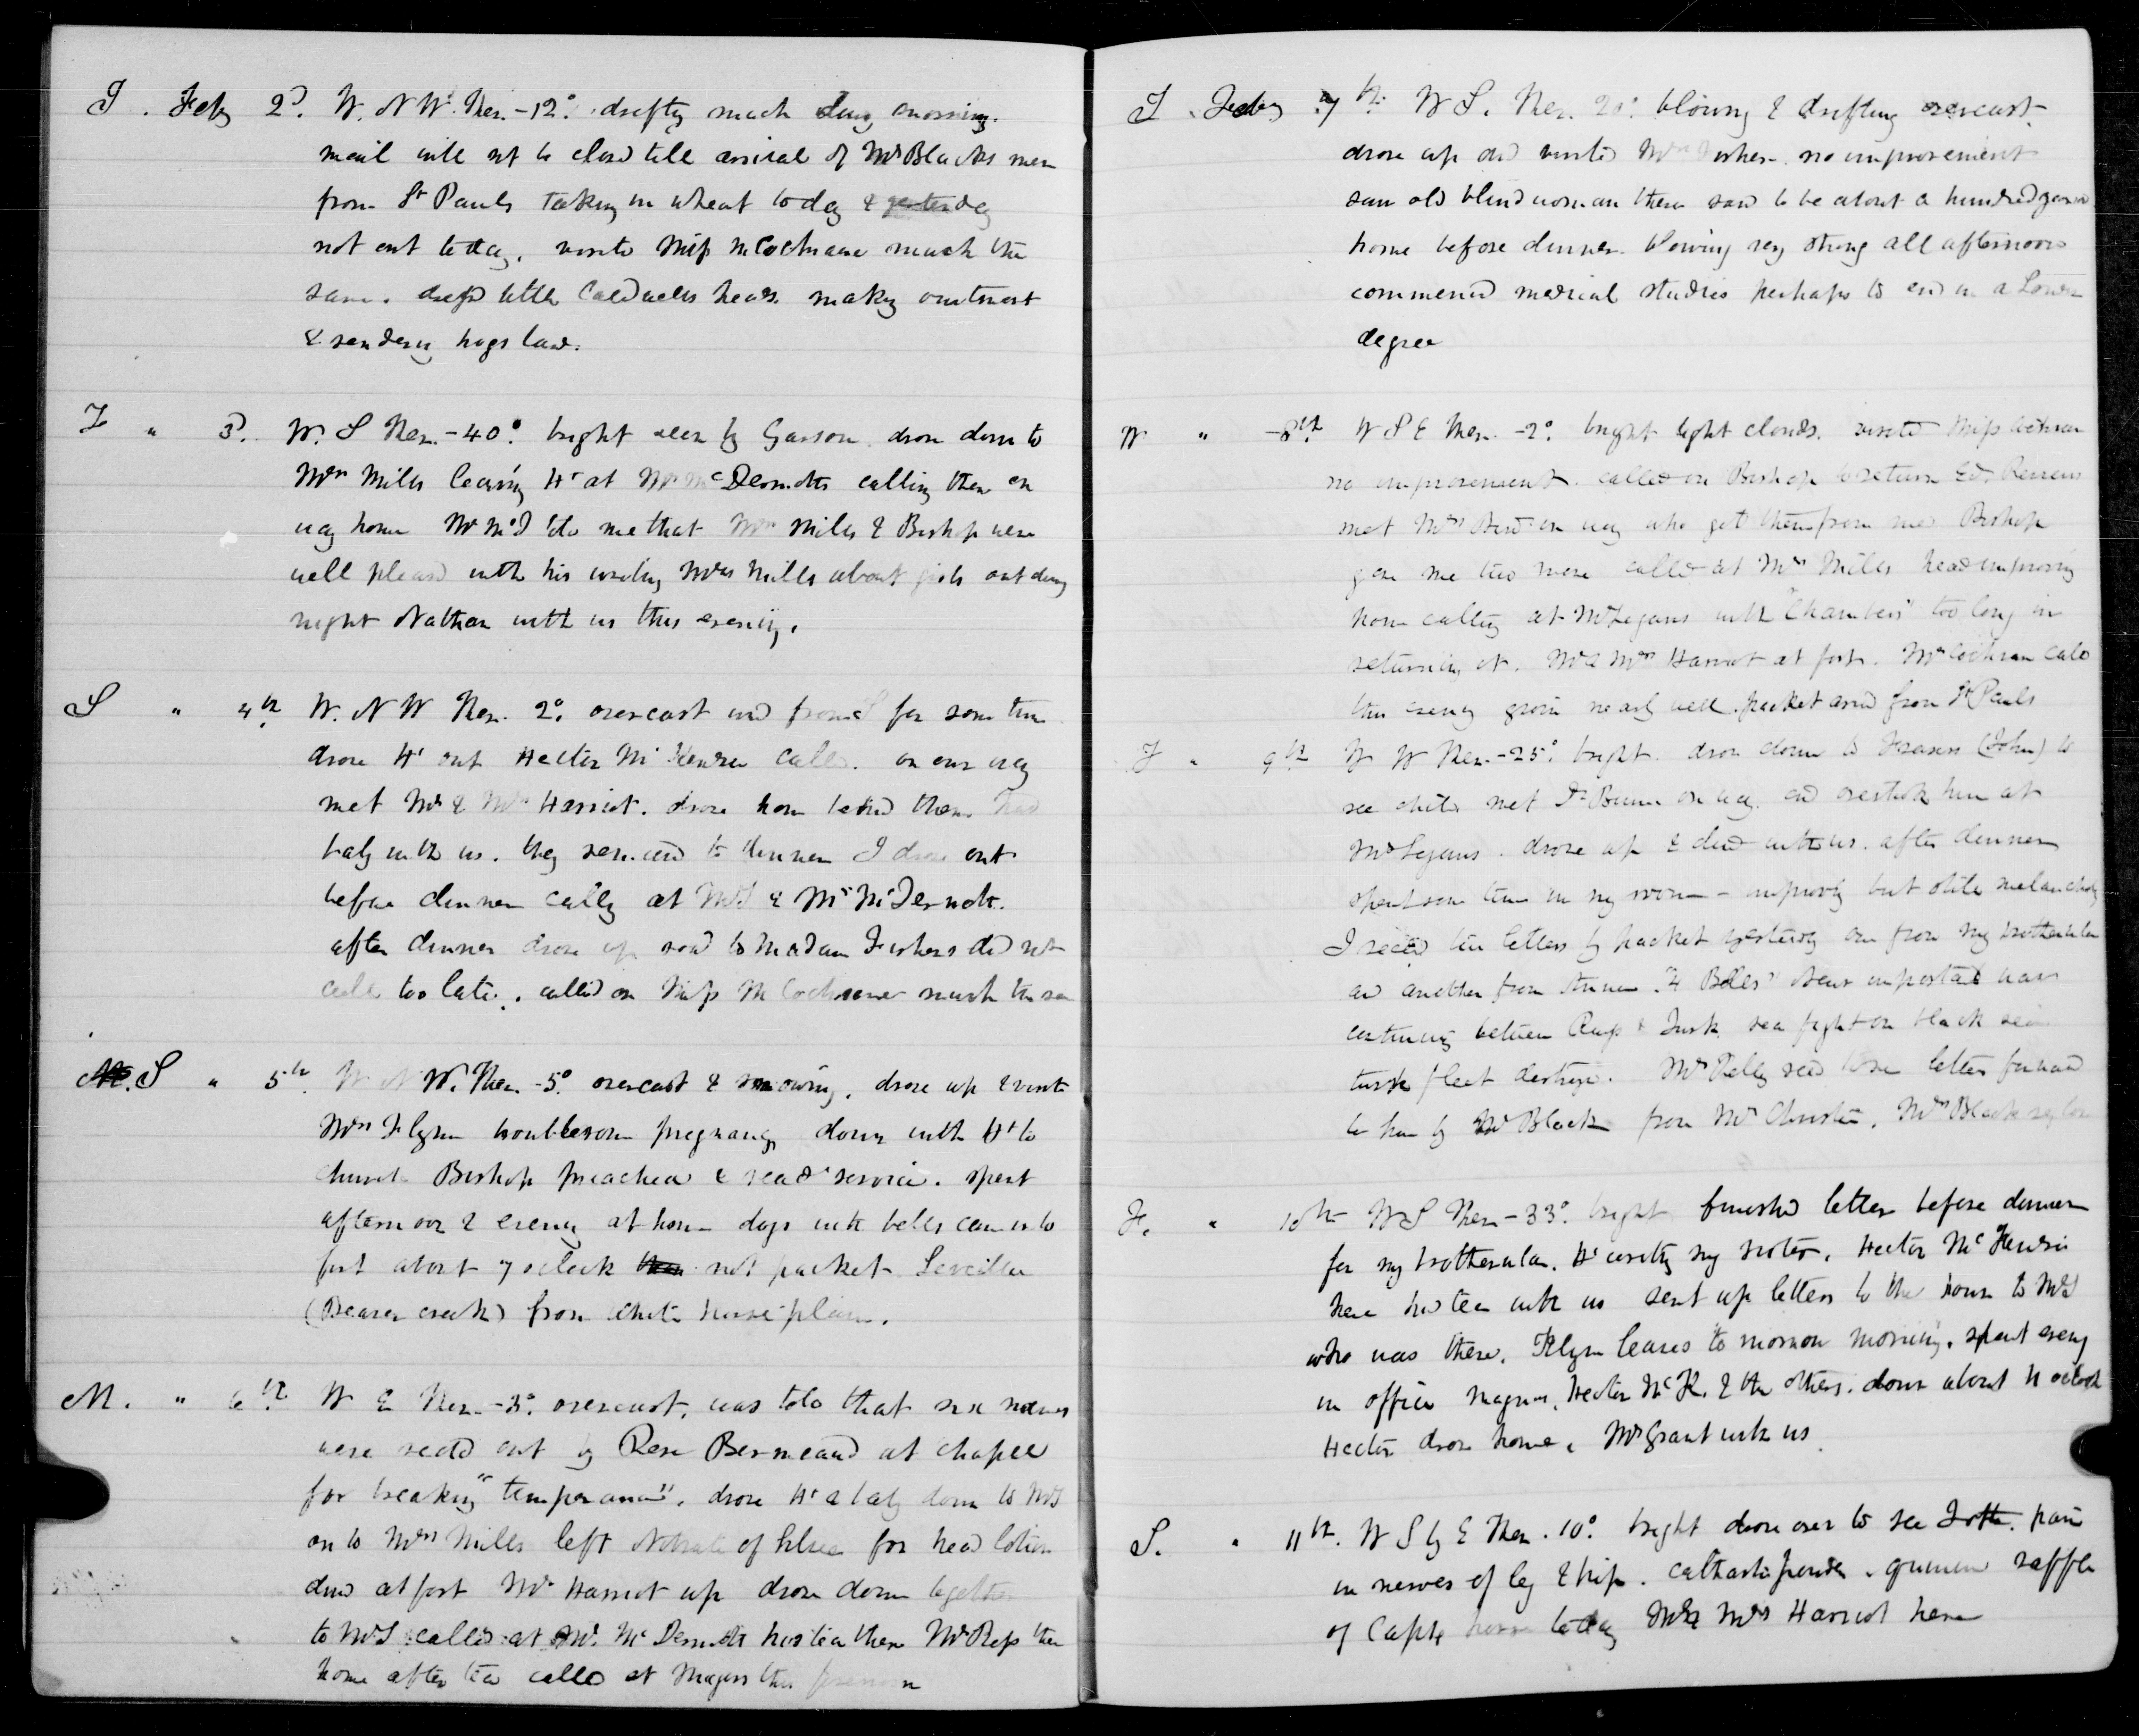 T. Feby 2d. W. N W. Ther. -12°. drifting much during morning.
mail will not be closed till arrival of Mr Blacks men
from St Pauls taking in wheat today & yesterday
not out today. visited Miss McCochrane much the
same. dressed little Caldwells head. making ointment
& rendering hogs lard.
F " 3d. W. S Ther. -40°. bright clear by Garson. drove down to
Mrs Mills leaving Ht at Mr McDermotts calling there on
way home Mr McD told me that Mrs Mills & Bishop were
well pleased with his writing Mrs Mills about girls out during
night Nathan with us this evening.
S " 4th W. N W Ther. 2°. overcast wind from S for some time
drove Ht out Hector McKenzie called. on our way
met Mr & Mrs Harriot. drove home behind them had
baby with us. they remained to dinner I drove out
before dinner calling at McD & Mr McDermott.
after dinner drove up road to Madam Fishers did not
call too late. called on Miss McCochrane much the same
M. S " 5th W N W. Ther. -5°. overcast & snowing. drove up & visited
Mrs Flynn troublesome pregnancy down with Ht to
church Bishop preached & read service. spent
afternoon & evening at home dogs with bells came into
fort about 7 oclock not packet Leveiller
(Beaver creek) from White horse plain.
M. " 6th W E Ther. -3°. overcast, was told that six names
were read out by Revd Bermeaud at chapel
for breaking "temperance". drove Ht & baby down to
on to Mrs Mills left Nitrate of Silver for head lotion
dined at fort Mr Harriot up drove down together
to called at Mr. McDermotts had tea there Mr Ross there
home after tea called at Magnus this forenoon
T Feby 7th W S. Ther. 20°. blowing & drifting overcast.
drove up and visited Mrs Fisher. no improvement
saw old blind woman there said to be about a hundred years
home before dinner. blowing very strong all afternoon
commenced medical studies perhaps to end in a London
degree
W " 8th W S E Ther. -2°. bright light clouds. visited Miss Cochran
no improvement. called on Bishop to return Ed. Reviews
met Mrs Bird on way who got them from me. Bishop
gave me two more called at Mrs Mills head improving
home calling at Mr Logans with "Chambers" too long in
returning it. Mr & Mrs Harriot at fort. Mr Cochran called
this evening groin nearly well. packet arrived from St Pauls
T " 9th W W Ther. -25°. bright. drove down to Frasers (John) to
see child met Dr Bunn on way. and overtook him at
Mr Logans. drove up & dined with us. after dinner
spent some time in my room - improving but still melancholy
I received two letters by packet yesterday one from my brotherinlaw
and another from "H Belles" news important war
continuing between Russ & Turk. sea fight on black sea
turk fleet destroyed. Mr Kelly recd letter forward
to him by Mr Black from Mr Christie. Mrs Black
F. " 10th W S Ther. -33°. bright finished letter before dinner
for my brotherinlaw. Ht writing my sister. Hector McKenzie
here had tea with us sent up letters to the town to
who was there. Flynn leaves to morrow morning. spent evening
in office Magnus, Hector McK. & the others. down about 11 oclock
Hector drove home. Mr Grant with us.
S. " 11th. W S by E Ther. 10°. bright drove over to see pain
in nerves of leg & hip. cathartic powder. quinine raffle
of Capts horse today Mr & Mrs Harriot here